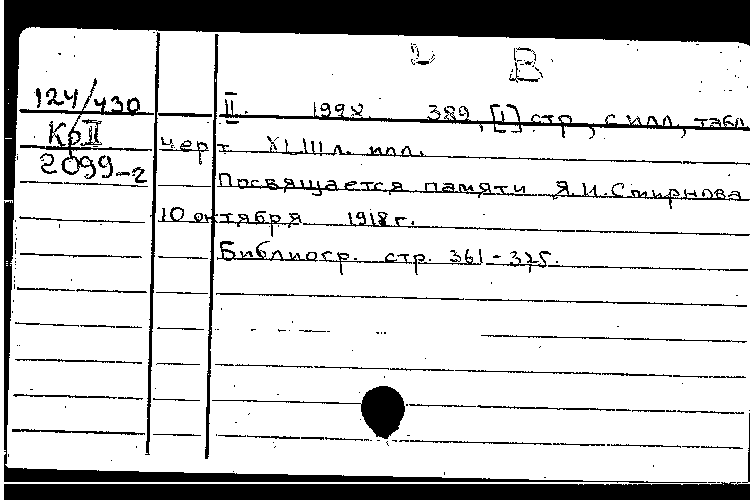 В
124/430
Кр II
2099-2
II. 1992. 389, [1] стр, с илл, табл
черт XLIII л. илл.
Посвящается памяти Я.И.Смирнова
10 октября 1918 г.
Библиогр. стр. 361-375.